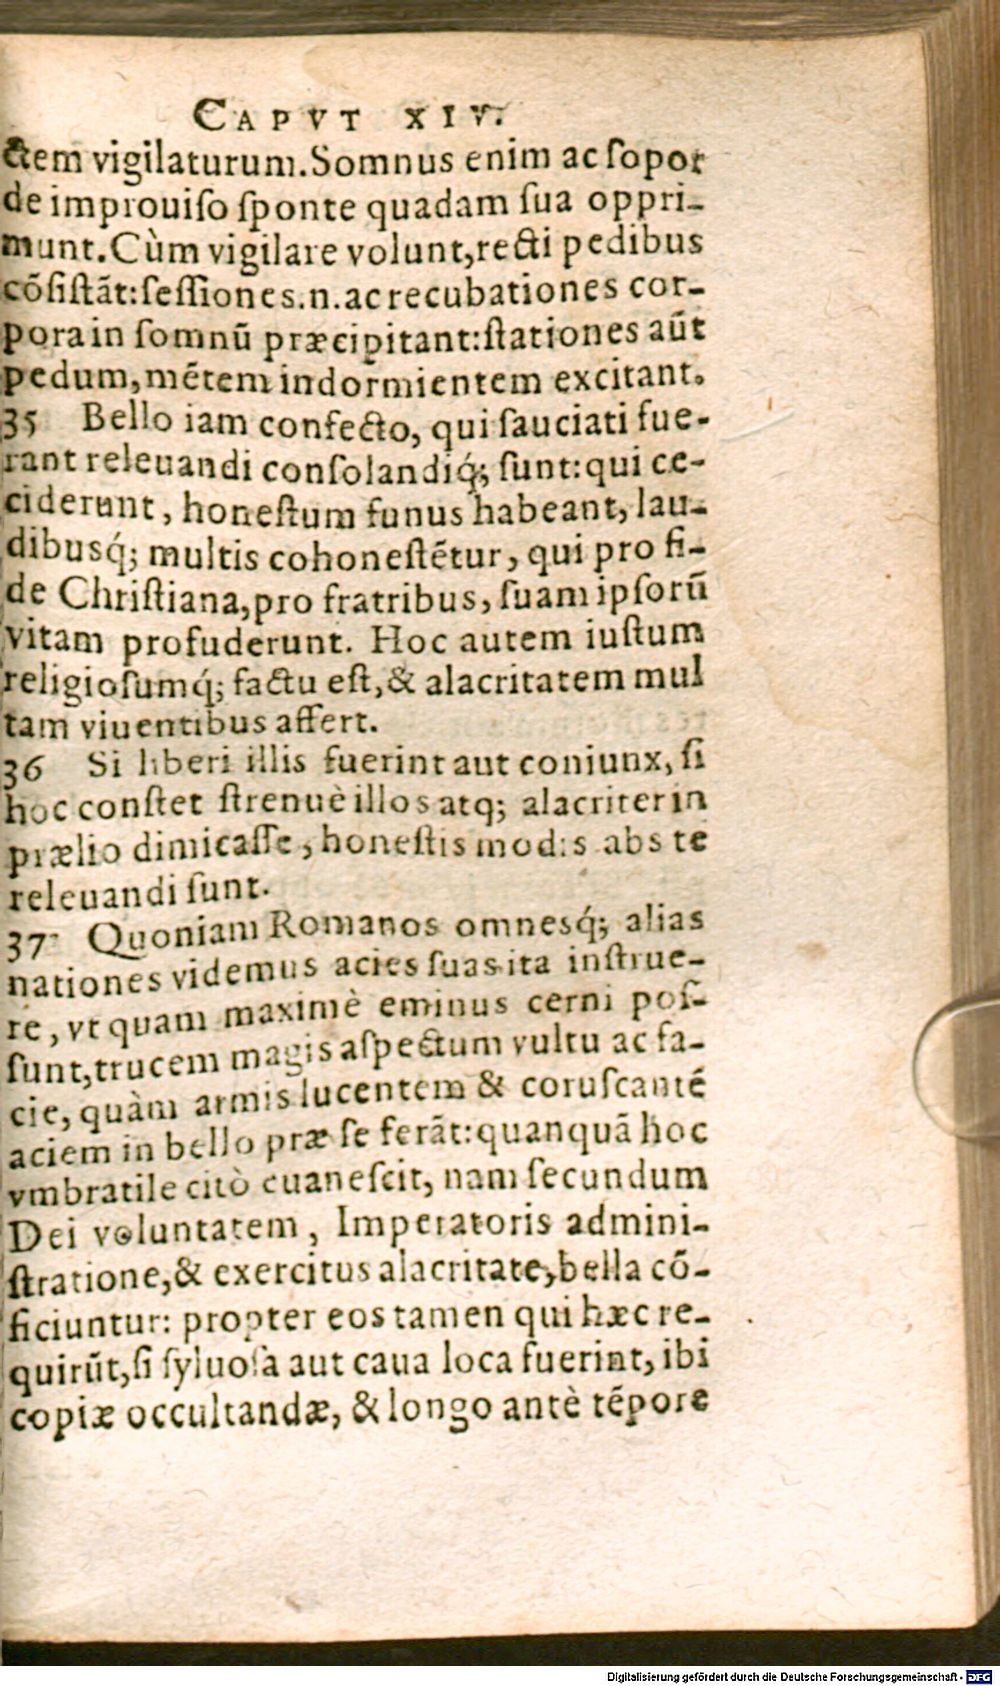 CAPVT XIV.
ctem vigilaturum. Somnus enim ac ſopor
de improuiſo ſponte quadam ſua oppri-
munt. Cùm vigilare volunt, recti pedibus
cõſiſtãt: ſeſſiones .n. ac recubationes cor-
pora in ſomnũ præcipitant: ſtationes aũt
pedum, mẽtem indormientem excitant.
35 Bello iam confecto, qui ſauciati fue-
rant releuandi conſolandiq́; ſunt: qui ce-
ciderunt, honeſtum funus habeant, lau-
dibusq́; multis cohoneſtẽtur, qui pro fi-
de Chriſtiana, pro fratribus, ſuam ipſorũ
vitam profuderunt. Hoc autem iuſtum
religioſumq́; factu eſt, & alacritatem mul
tam viuentibus affert.
36 Si liberi illis fuerint aut coniunx, ſi
hoc conſtet ſtrenuè illos atq; alacriter in
prælio dimicaſſe, honeſtis modis abs te
releuandi ſunt.
37 Quoniam Romanos omnesq́; alias
nationes videmus acies ſuas ita inſtrue-
re, vt quam maximè eminus cerni poſ-
ſunt, trucem magis aſpectum vultu ac fa-
cie, quàm armis lucentem & coruſcantẽ
aciem in bello præ ſe ferãt: quanquã hoc
vmbratile citò euaneſcit, nam ſecundum
Dei voluntatem, Imperatoris admini-
ſtratione, & exercitus alacritate, bella cõ-
ficiuntur: propter eos tamen qui hæc re-
quirũt, ſi ſyluoſa aut caua loca fuerint, ibi
copiæ occultandæ, & longo antè tẽpore
Digitalisierung gefördert durch die Deutsche Forschungsgemeinschaft - DFG